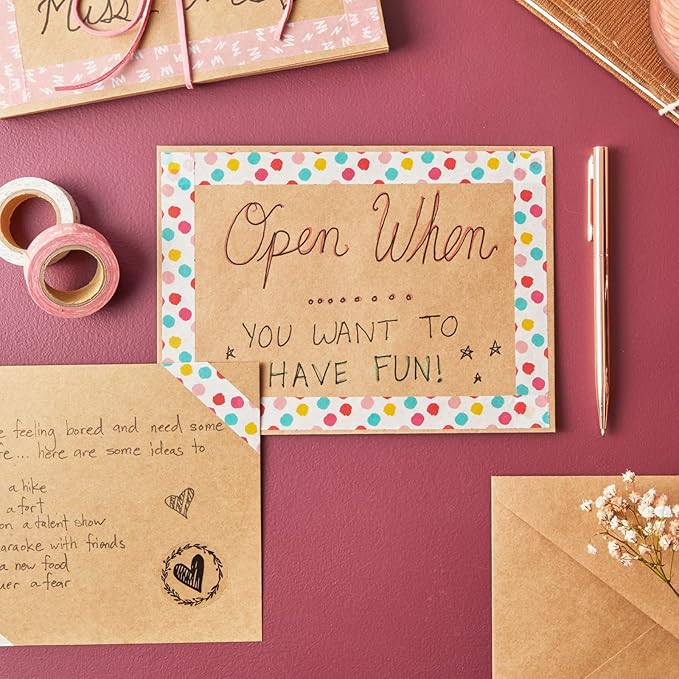 Miss
Open When
YOU WANT TO
HAVE FUN!
feeling bored and need some
... here are some ideas to
a hike
a fort
on a talent show
araoke with friends
a new food
uer a fear